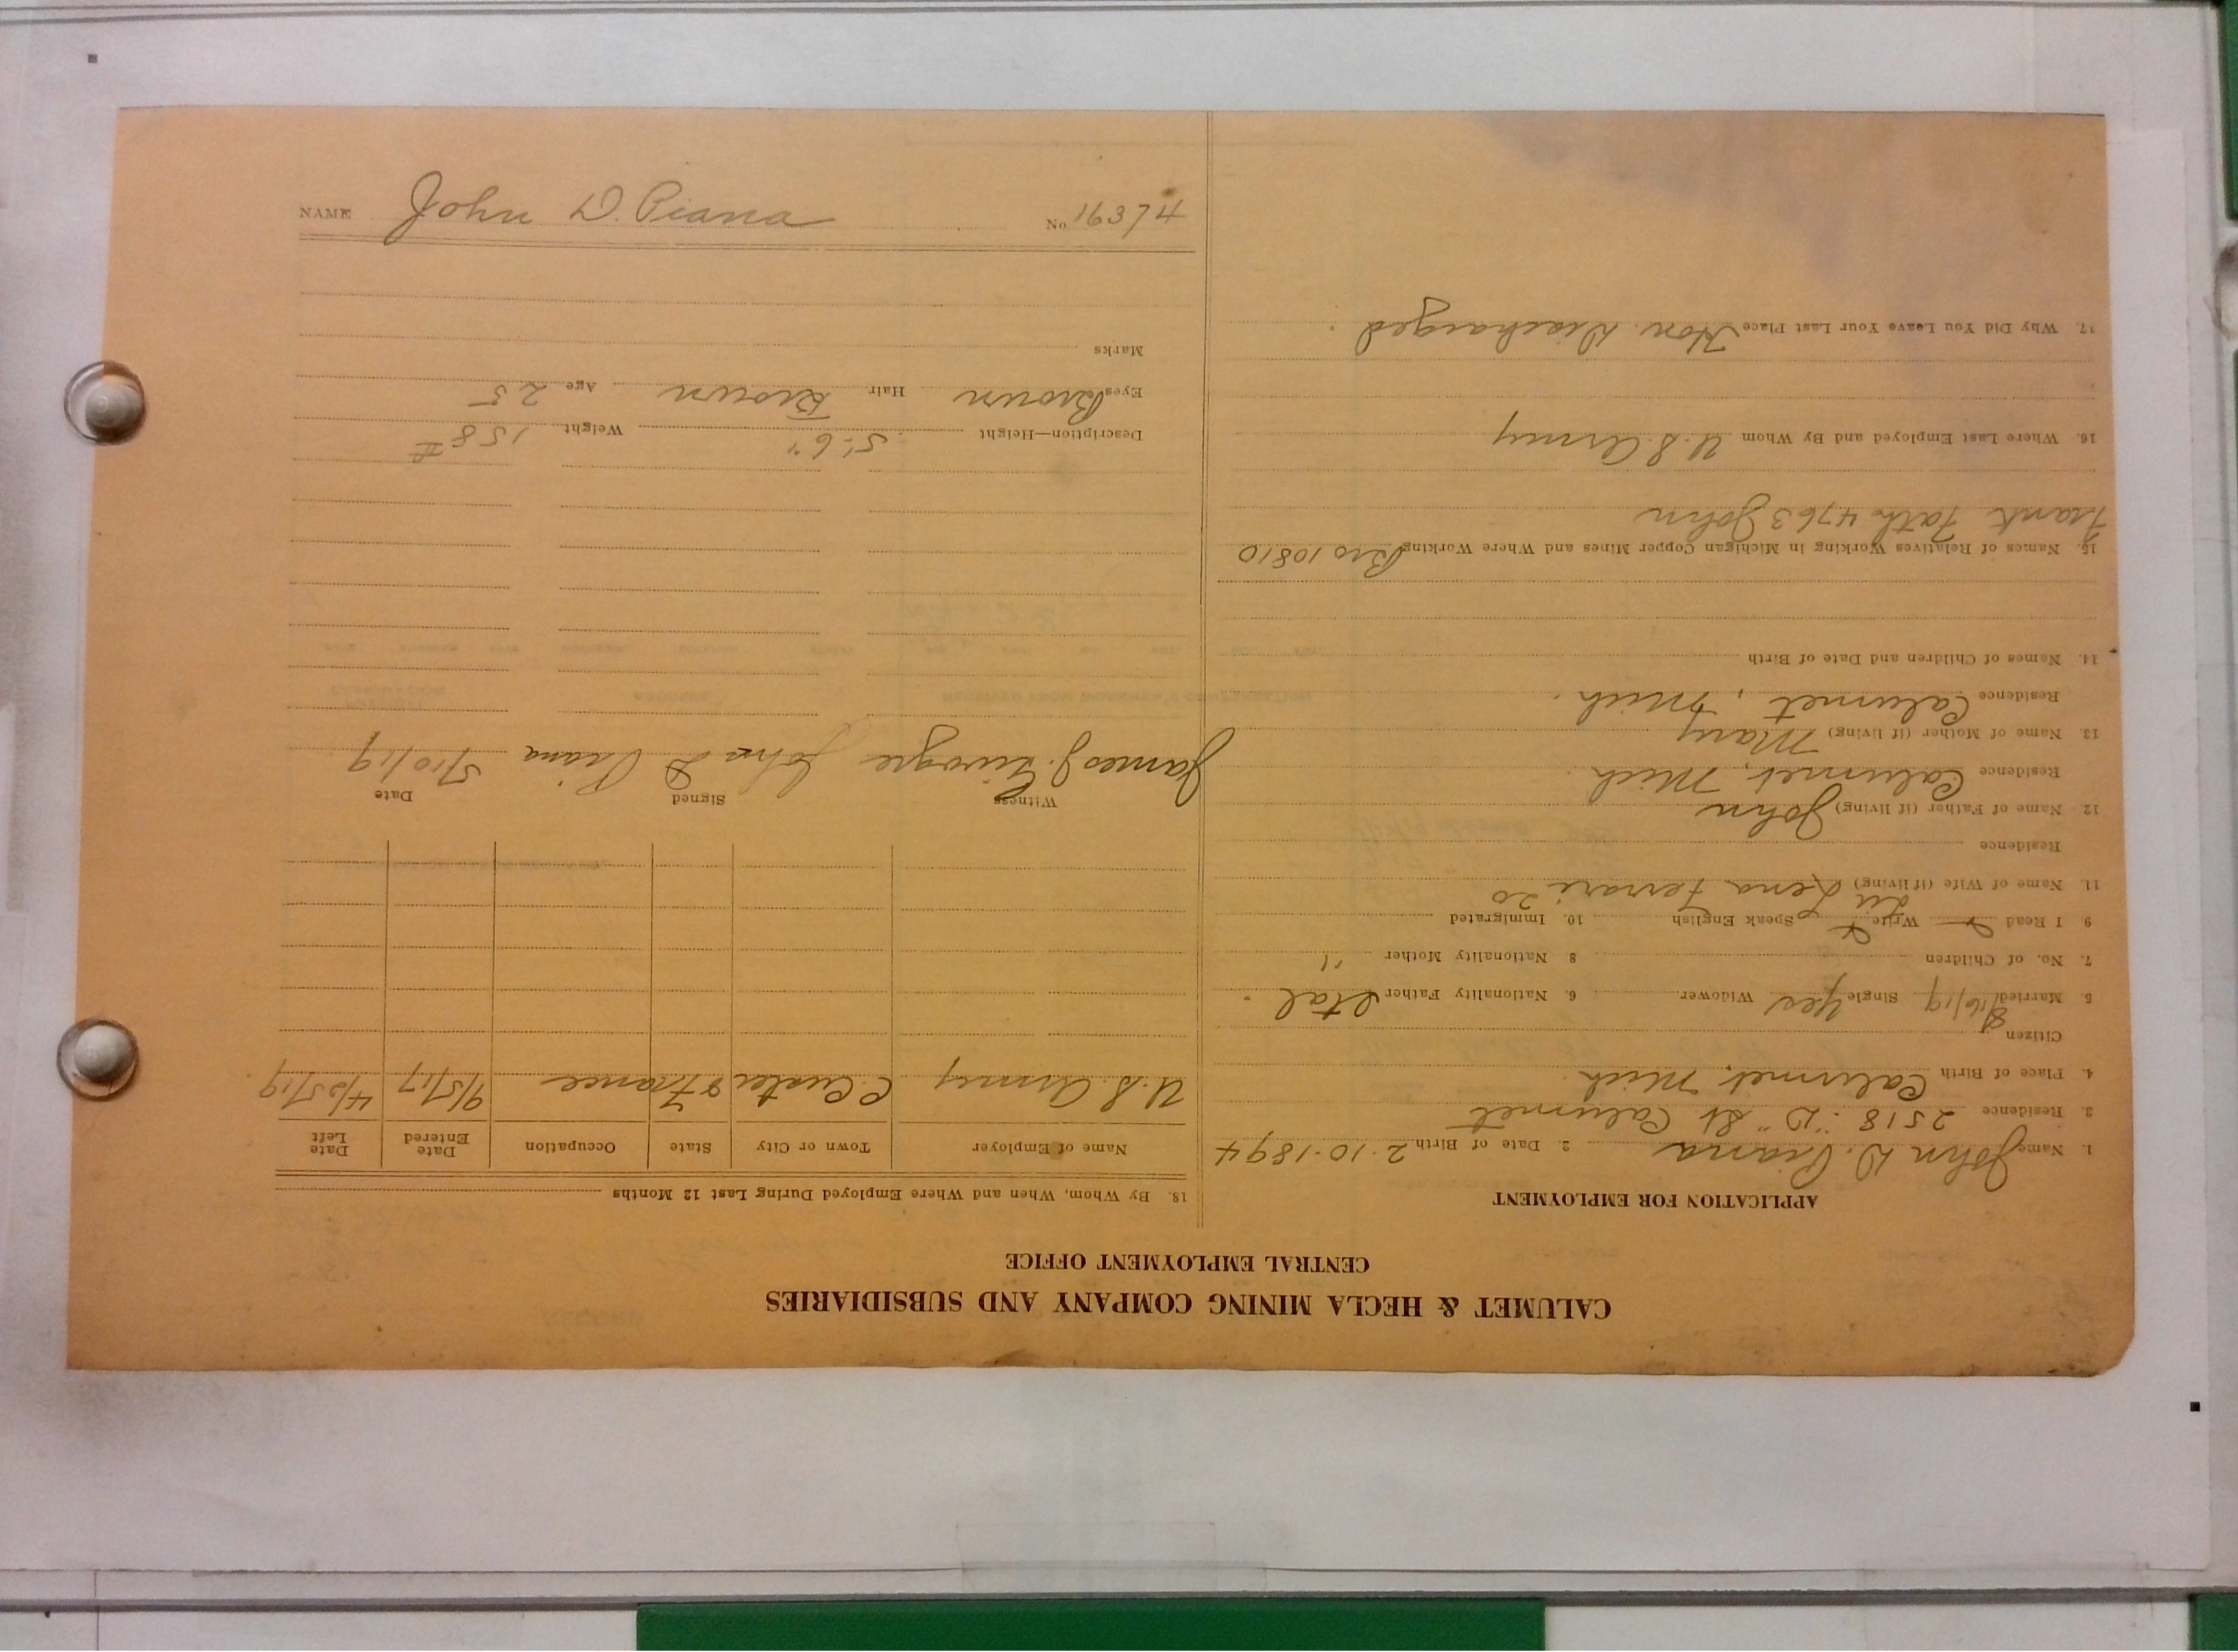 NAME John D. Piana No. 16374
CALUMET & HECLA MINING COMPANY AND SUBSIDIARIES
CENTRAL EMPLOYMENT OFFICE
APPLICATION FOR EMPLOYMENT
1. Name John D. Piana 2 Date of Birth 2-10-1894
3. Residence 2518 "D" St Calumet
4. Place of Birth Calumet, Mich.
Citizen
5 Married 8/16/19 Single Yes Widower 6. Nationality Father Ital.
7. No. of Children 8 Nationality Mother "
9 I Read Write Speak English 10. Immigrated
11. Name of Wife (if living) Lena Ferrari 20
Residence
12 Name of Father (if living) John
Residence Calumet, Mich.
13. Name of Mother (if living) Mary
Residence Calumet, Mich.
14. Names of Children and Date of Birth
15. Names of Relatives Working in Michigan Copper Mines and Where Working Bro 10810
Frank Fath 4763 John
16. Where Last Employed and By Whom U.S. Army
17. Why Did You Leave Your Last Place Hon. Discharged.
18. By Whom, When and Where Employed During Last 12 Months
Name of Employer Town or City State Occupation Date Entered Date Left
U.S. Army C. Custer & France 9/5/17 4/25/19
Witness Signed Date
James J. John D Piana 5/10/19
Description—Height 5'-6" Weight 158 #
Eyes Brown Hair Brown Age 25
Marks